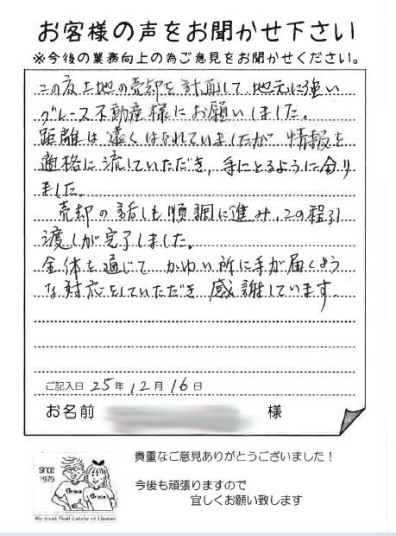 お客様の声をお聞かせ下さい
※今後の業務向上の為ご意見をお聞かせください。
この度土地の売却を計画して、地元に強い
グレース不動産様にお願いしました。
距離は遠くはなれていましたが 情報を
適格に流していただき、手にとるように分り
ました。
売却の話しも順調に進み、この程引
渡しが完了しました。
全体を通じて かゆい所に手が届くよう
な対応をしていただき 感謝しています。
ご記入日 25年 12月 16日
お名前 様
貴重なご意見ありがとうございました！
今後も頑張りますので
宜しくお願い致します
since
1979